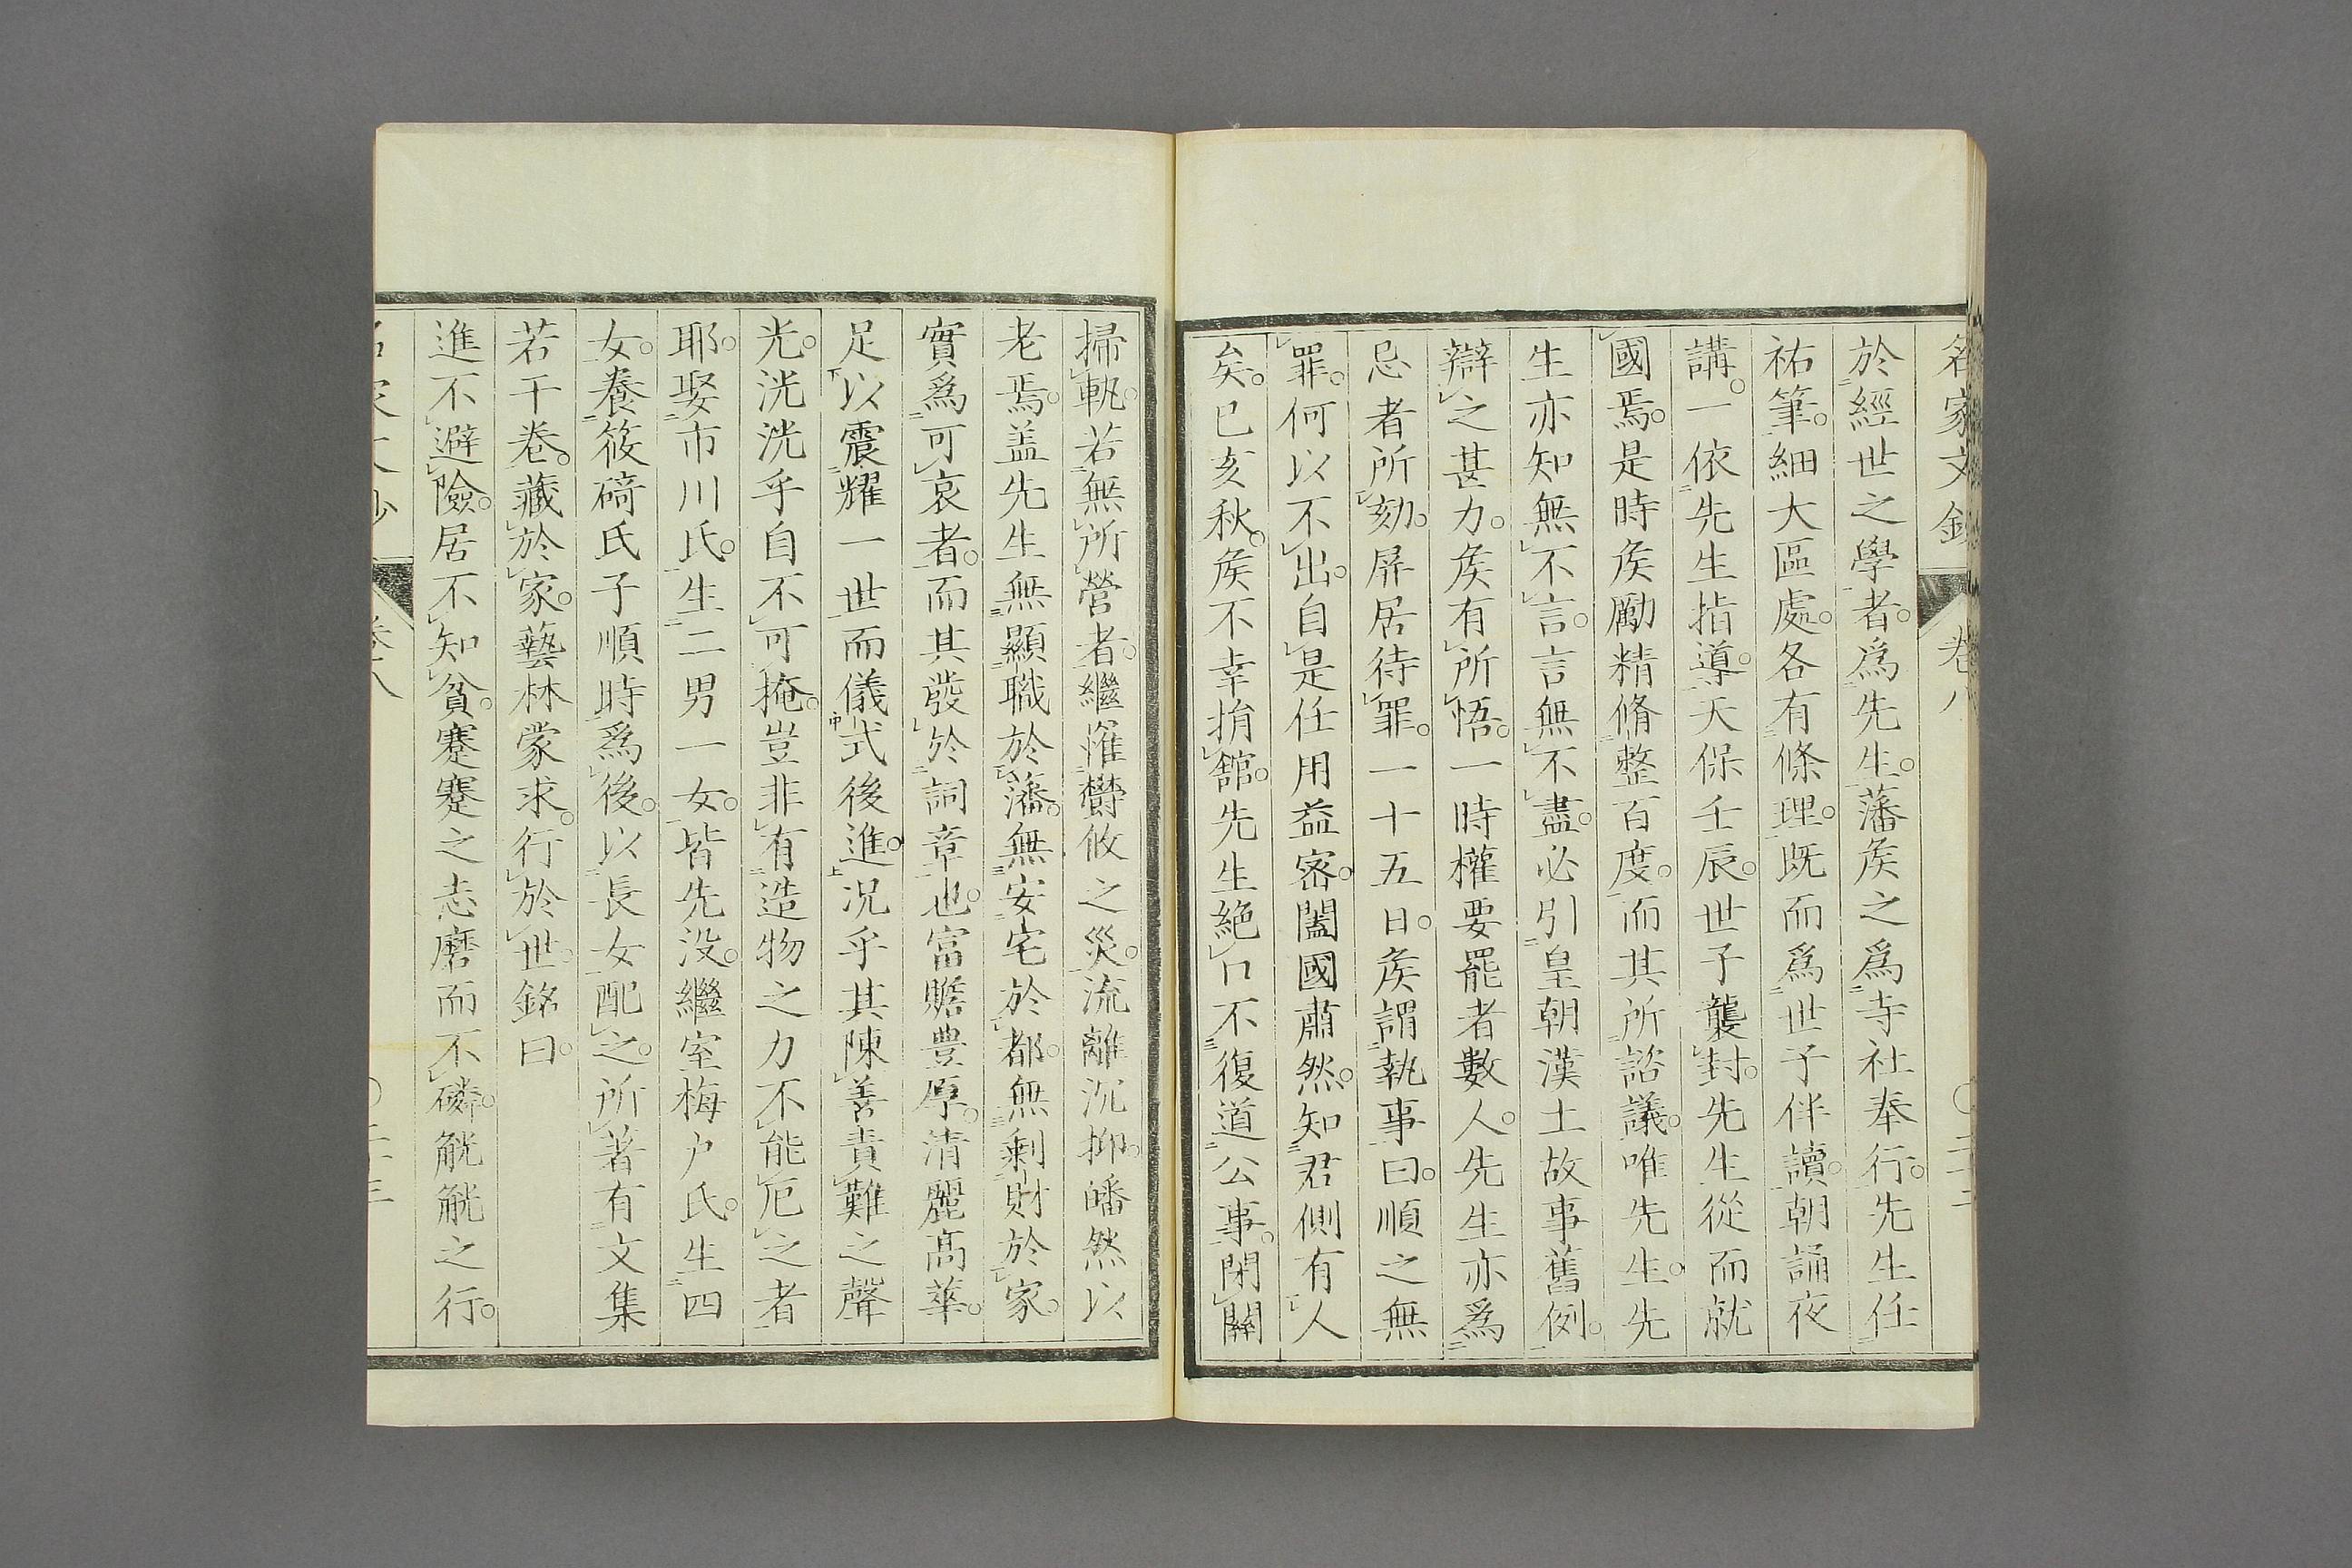 名家文鈔 卷八 〇二十二
於經世之學者。爲先生。藩矦之爲寺社奉行。先生任
祐筆。細大區處。各有條理。既而爲世子伴讀。朝誦夜
講。一依先生指導。天保壬辰。世子襲封。先生從而就
國焉。是時矦勵精脩整百度。而其所諮議。唯先生。先
生亦知無不言。言無不盡。必引皇朝漢土故事舊例。
辯之甚力。矦有所悟。一時權要罷者數人。先生亦爲
忌者所劾。屏居待罪。一十五日。矦謂執事曰。順之無
罪。何以不出。自是任用益密。闔國肅然。知君側有人
矣。已亥秋。矦不幸捐館。先生絶口不復道公事。閉關
掃軌。若無所營者。繼罹欝攸之災。流離沉抑。皤然以
老焉。盖先生無顯職於藩。無安宅於都。無剩財於家。
實爲可哀者。而其發於詞章也。富贍豊原。清麗高華。
足以震耀一世而儀式後進。况乎其陳善責難之聲
光。洸洸乎自不可掩。豈非有造物之力不能厄之者
耶。娶市川氏。生二男一女。皆先没。繼室梅户氏。生四
女。養筱碕氏子順時爲後。以長女配之。所著有文集
若干卷。藏於家。藝林蒙求。行於世。銘曰。
進不避險。居不知貧。蹇蹇之志磨而不磷。觥觥之行。